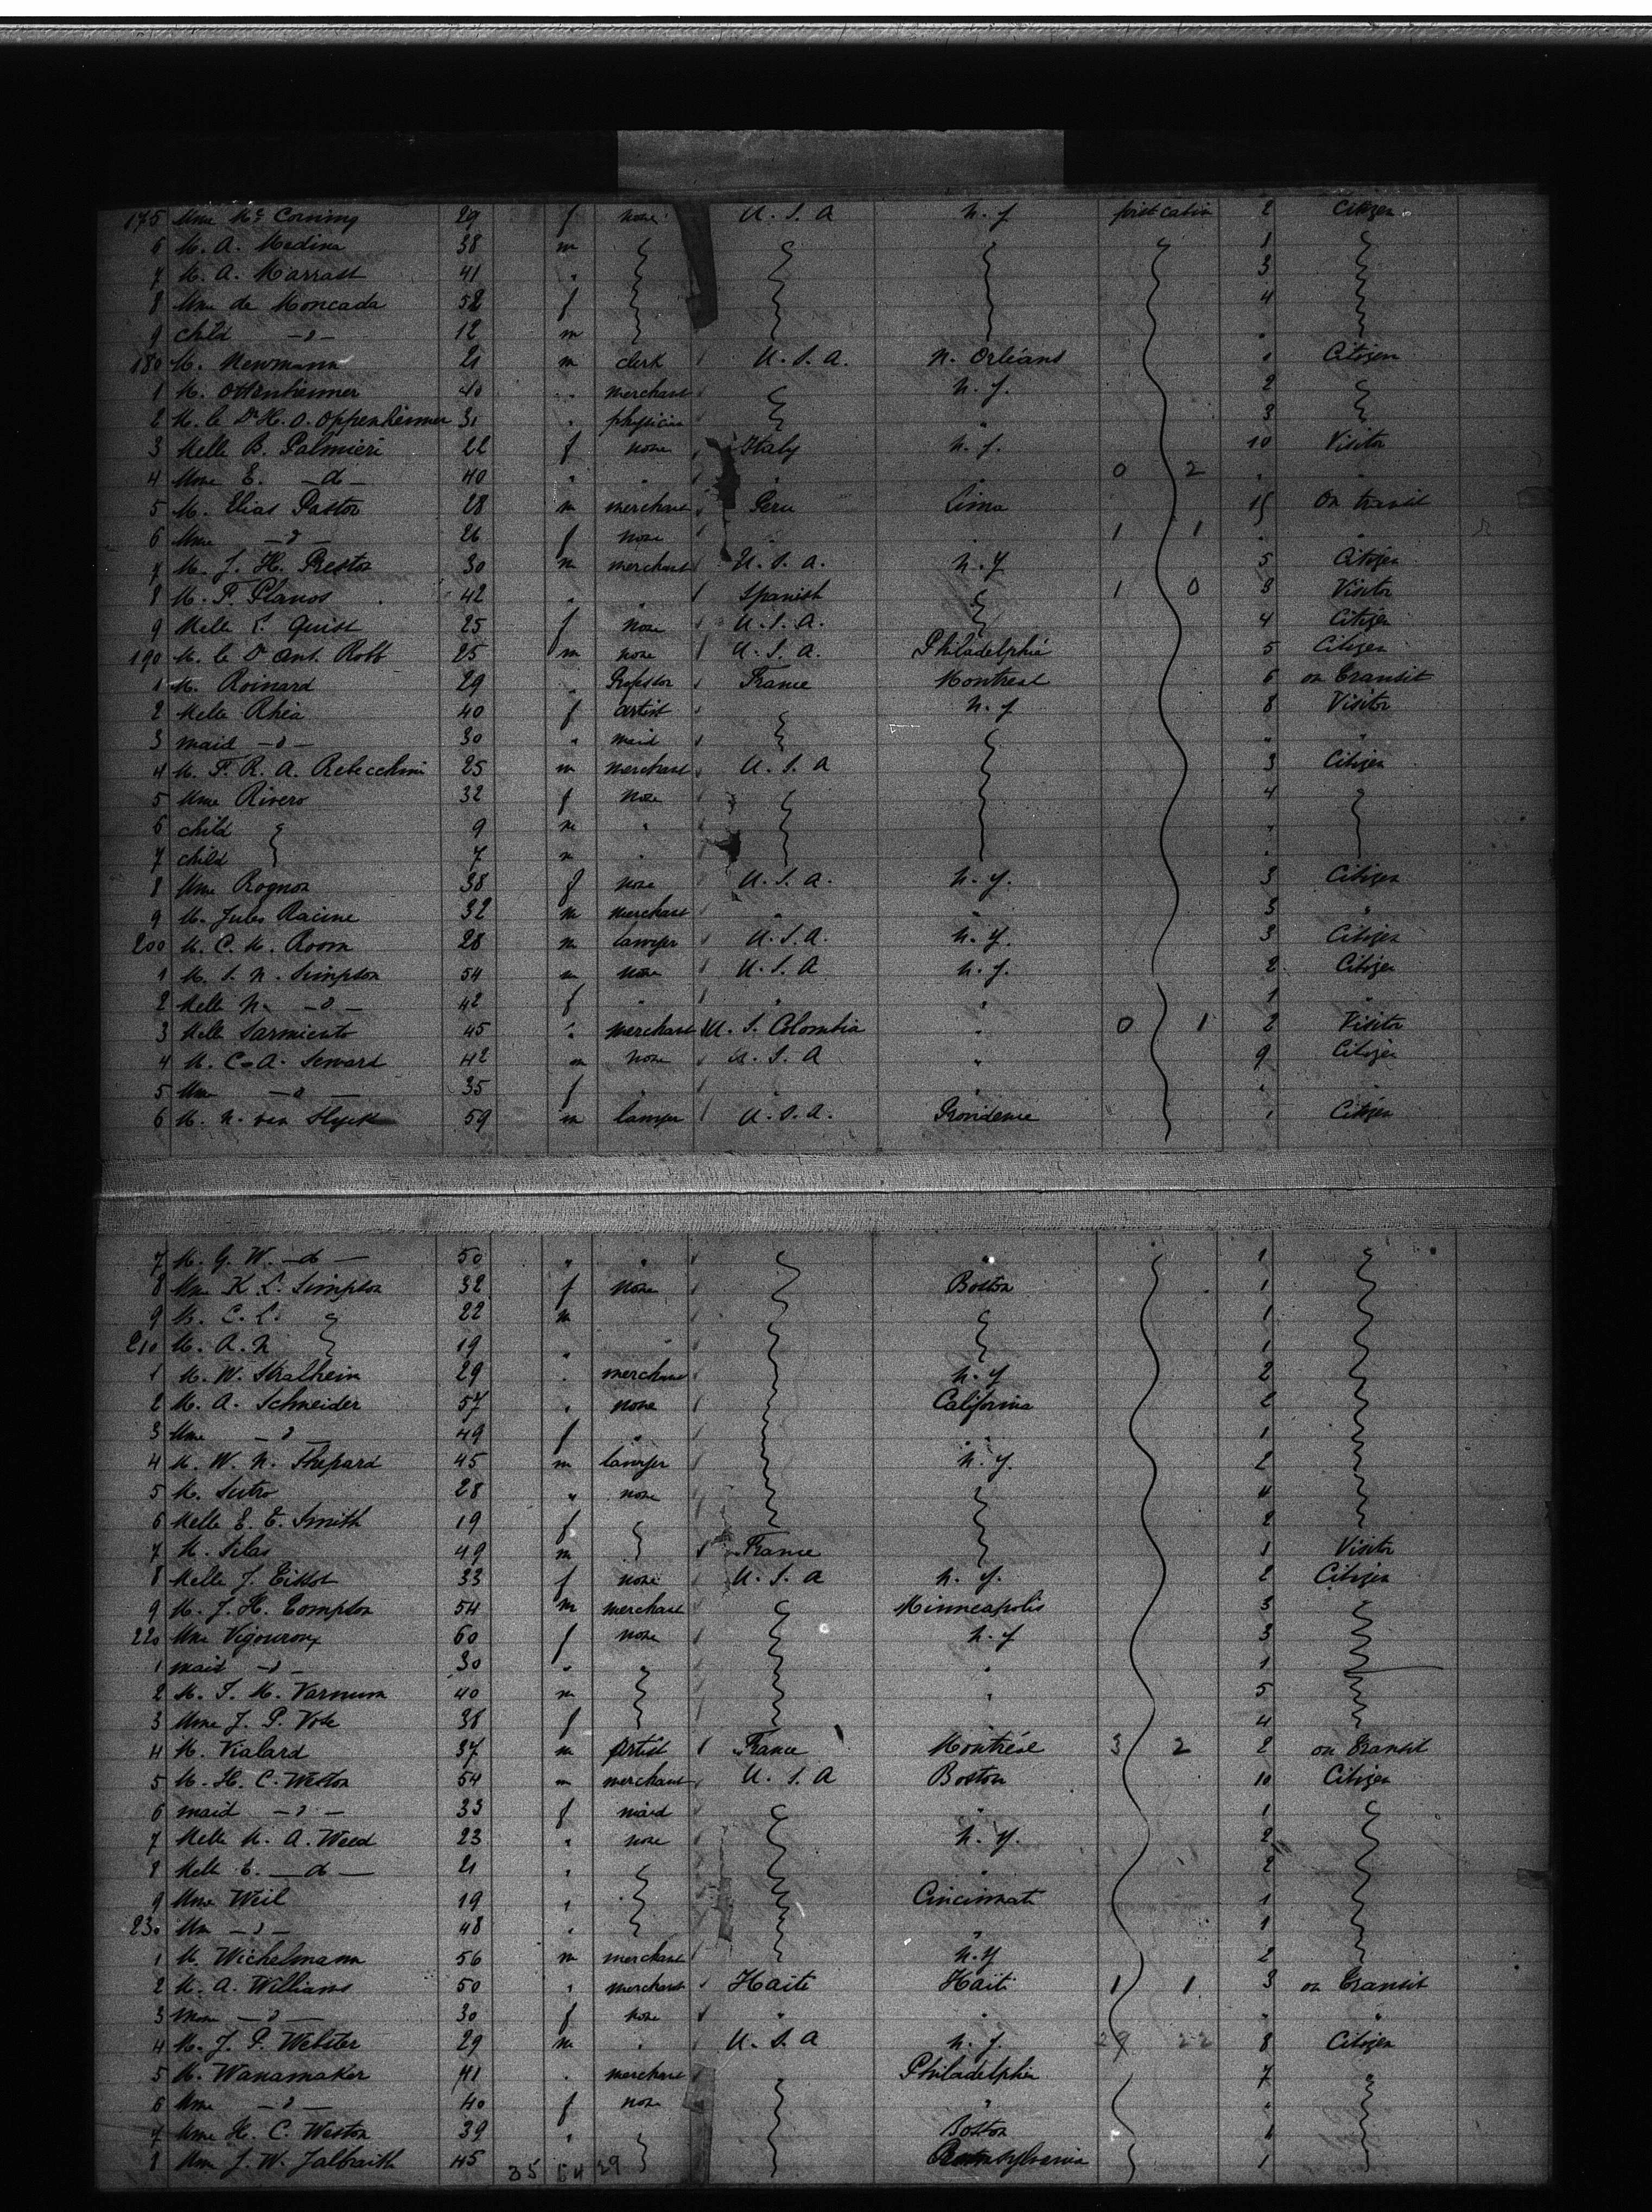 175 Mme Mc Corning 29 f none U. S. A N. Y. first cabin 2 Citizen
6 M. A. Medina 38 m 1
7 M. A. Marrast 41 " 3
8 Mme de Moncada 52 f 4
9 child —d— 12 m "
180 M. Newmann 21 m clerk U. S. A. N. Orléans 1 Citizen
1 M. Ottenheimer 40 " merchant N. Y. 2
2 M. le Dr H. O. Oppenheimer 31 " physician " 3
3 Melle B. Palmieri 22 f none Italy N. Y. 10 Visitor
4 Mme E. —d— 40 " " " " 0 2 " "
5 M. Elias Pastor 28 m merchant Peru Lima 15 On transit
6 Mme —d— 26 f none " " 1 1 " "
7 M. J. H. Preston 30 m merchant U. S. A. N. Y 5 Citizen
8 M. P. Planos 42 " " Spanish 1 0 3 Visitor
9 Melle L. Quist 25 f none U. S. A. 4 Citizen
190 M. le Dr Ant. Robb 25 m none U. S. A. Philadelphia 5 Citizen
1 M. Roinard 29 " Professor France Montreal 6 on Transit
2 Melle Rhéa 40 f artist N. Y 8 Visitor
3 maid —d— 30 " maid " "
4 M. F. R. A. Rebecchini 25 m merchant U. S. A 3 Citizen
5 Mme Rivero 32 f none 4
6 child 9 m " "
7 child 7 m " "
8 Mme Rognon 38 f none U. S. A. N. Y. 3 Citizen
9 M. Jules Racine 32 m merchant " " 3 "
200 M. C. M. Room 28 m lawyer U. S. A. N. Y. 3 Citizen
1 M. S. N. Simpson 54 m none U. S. A N. Y. 2 Citizen
2 Melle N. —d— 42 f " " " 1 "
3 Melle Sarmiento 45 " merchant U. S. Colombia " 0 1 2 Visitor
4 M. C. A. Seward 42 m none U. S. A " 9 Citizen
5 Mme —d— 35 f " " " " "
6 M. N. van Slyck 59 m lawyer U. S. A. Providence 1 Citizen
7 M. G. W. —d— 50 " " " 1
8 Mme K. L. Simpson 32 f none Boston 1
9 M. C. L. 22 m 1
210 M. A. N 19 " " 1
1 M. W. Stralheim 29 " merchant N. Y 2
2 M. A. Schneider 57 " none California 2
3 Mme —d— 49 f " " 1
4 M. W. N. Shepard 45 m lawyer N. Y. 2
5 M. Sutro 28 " none 4
6 Melle E. E. Smith 19 f 2
7 M. Silas 49 m France 1 Visitor
8 Melle J. Tissot 33 f none U. S. A N. Y. 2 Citizen
9 M. J. H. Tompson 54 m merchant Minneapolis 3
220 Mme Vigouroux 60 f none N. Y 3
1 maid —d— 30 " " " 1
2 M. J. M. Varnum 40 m " 5
3 Mme J. P. Vose 38 f " 4
4 M. Vialard 37 m Artist France Montréal 3 2 2 on Transit
5 M. H. C. Weston 54 m merchant U. S. A Boston 10 Citizen
6 maid —d— 33 f maid " 1
7 Melle M. A. Weed 23 " none N. Y. 2
8 Melle E. —d— 21 " " 2
9 Mme Weil 19 " Cincinnati 1
230 Mm —d— 48 " " 1
1 M. Wichelmann 56 m merchant N. Y 2
2 M. A. Williams 50 " merchant Haïti Haïti 1 1 3 on Transit
3 Mme —d— 30 f none " " " "
4 M. J. P. Webster 29 m " U. S. A N. Y. 29 22 8 Citizen
5 M. Wanamaker 41 " merchant Philadelphia 7
6 Mme —d— 40 f none " "
7 Mme H. C. Weston 39 " Boston 1
8 Mme J. W. Jalbraith 45 35 64 29 Pennsylvania 1